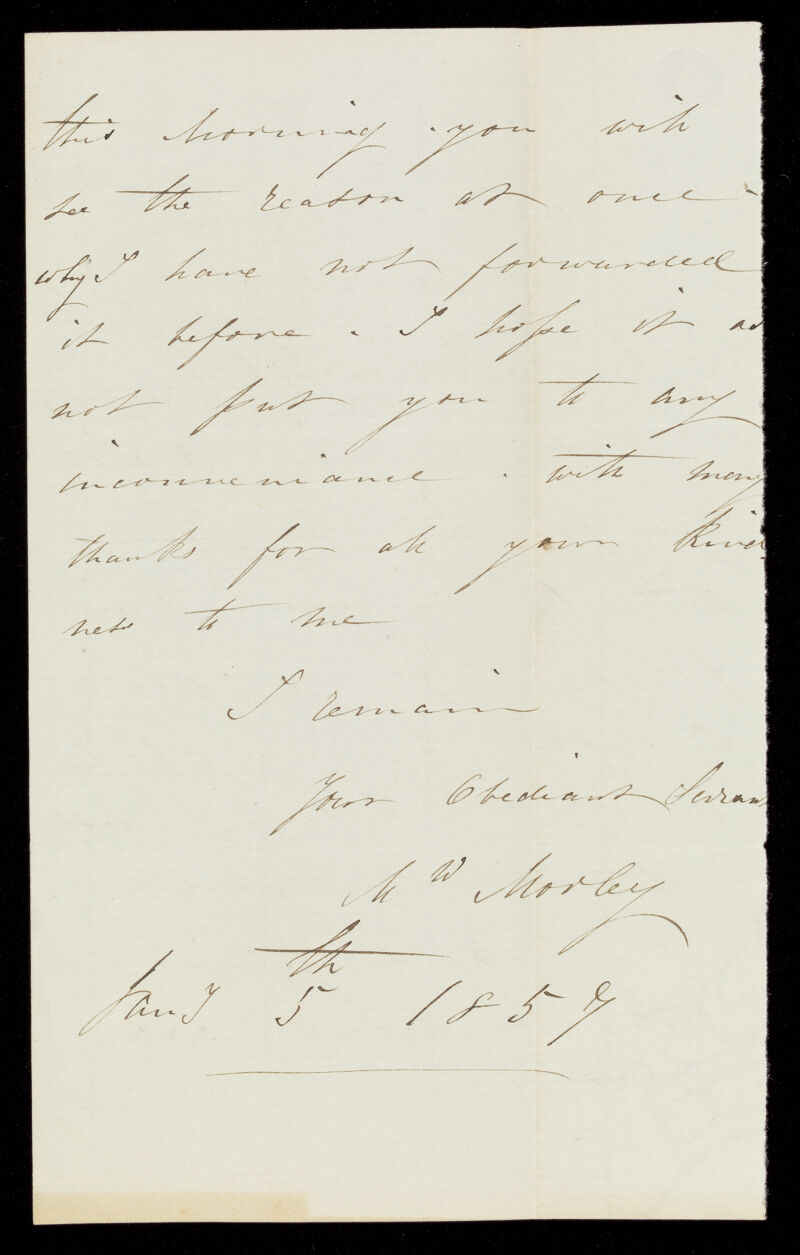 this Morning . you will
see the reason at once -
why I have not forwarded
it before . I hope it as
not put you to any
inconveniance . with many
thanks for all your Kind
ness to me
I remain
Your Obediant Servant
M W Morley
Jany 5th 1857